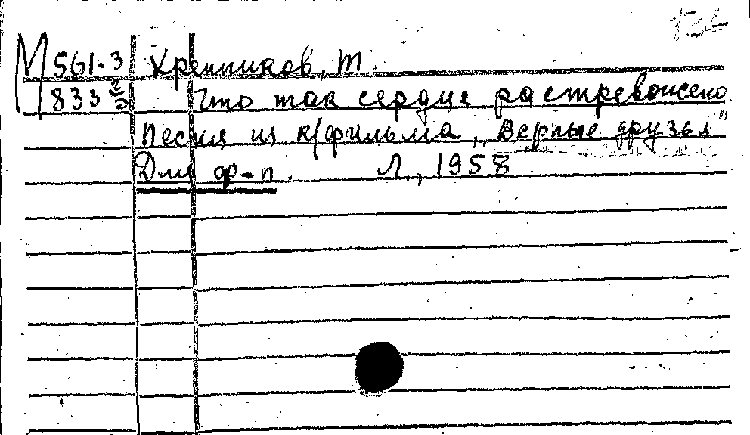 М 561-3 Хренников, Т.
833 Что так сердце растревожено
Песня из к/фильма „Верные друзья"
Для ф-п. Л., 1958